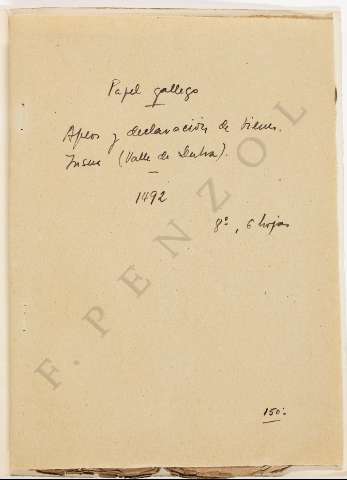 Papel gallego
Apeos y declaración de bienes.
Insua (Valle de Dubra).
1492
8º, 6 hojas
F. PENZOL
150.-